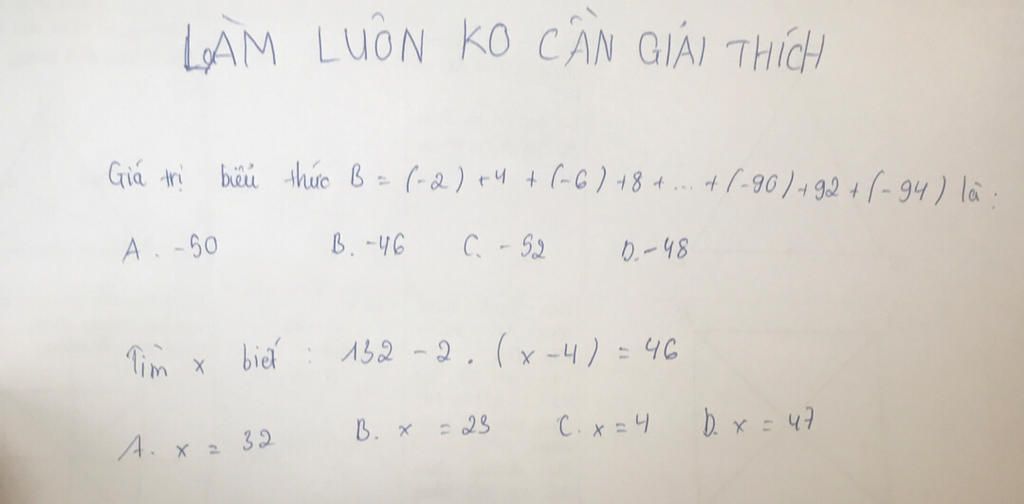 LÀM LUÔN KO CẦN GIẢI THÍCH
Giá trị biểu thức B = (-2) + 4 + (-6) + 8 + ... + (-90) + 92 + (-94) là :
A. -50 B. -46 C. -52 D. -48
Tìm x biết : 132 - 2 . (x - 4) = 46
A. x = 32 B. x = 23 C. x = 4 D. x = 47